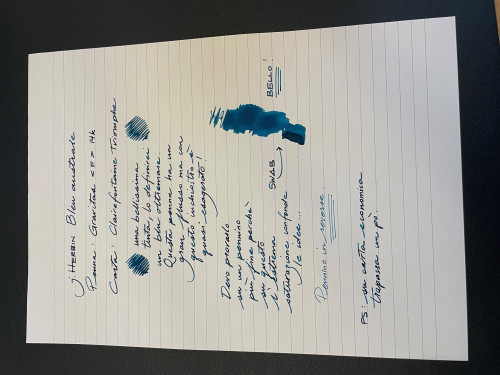 J. HERBIN Bleu australe
Penna: Gravitas <F> 14k
Carta: Clairefontaine Triomphe
una bellissima
tinta: lo definirei
un blu oltremare.
Questa penna ha un
gran flusso ma con
questo inchiostro è
quasi esagerato!
Devo provarlo
su un pennino
più fine perché
su questo
l'estrema
saturazione confonde
le idee...
SWAB
BELLO!
Pennino in reverse...
PS: su carta economica
trapassa un po'.